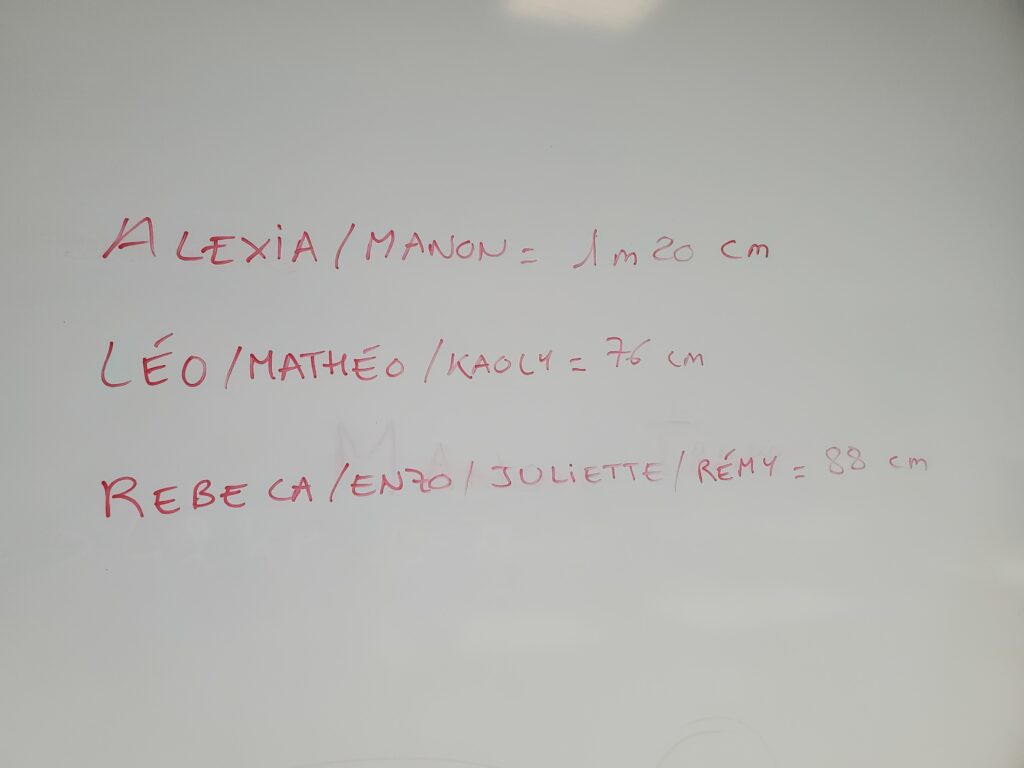 ALEXiA / MANON = 1m20 cm
LÉO / MATHÉO / KAOLY = 76 cm
REBECA / ENZO / JULiETTE / RÉMY = 88 cm